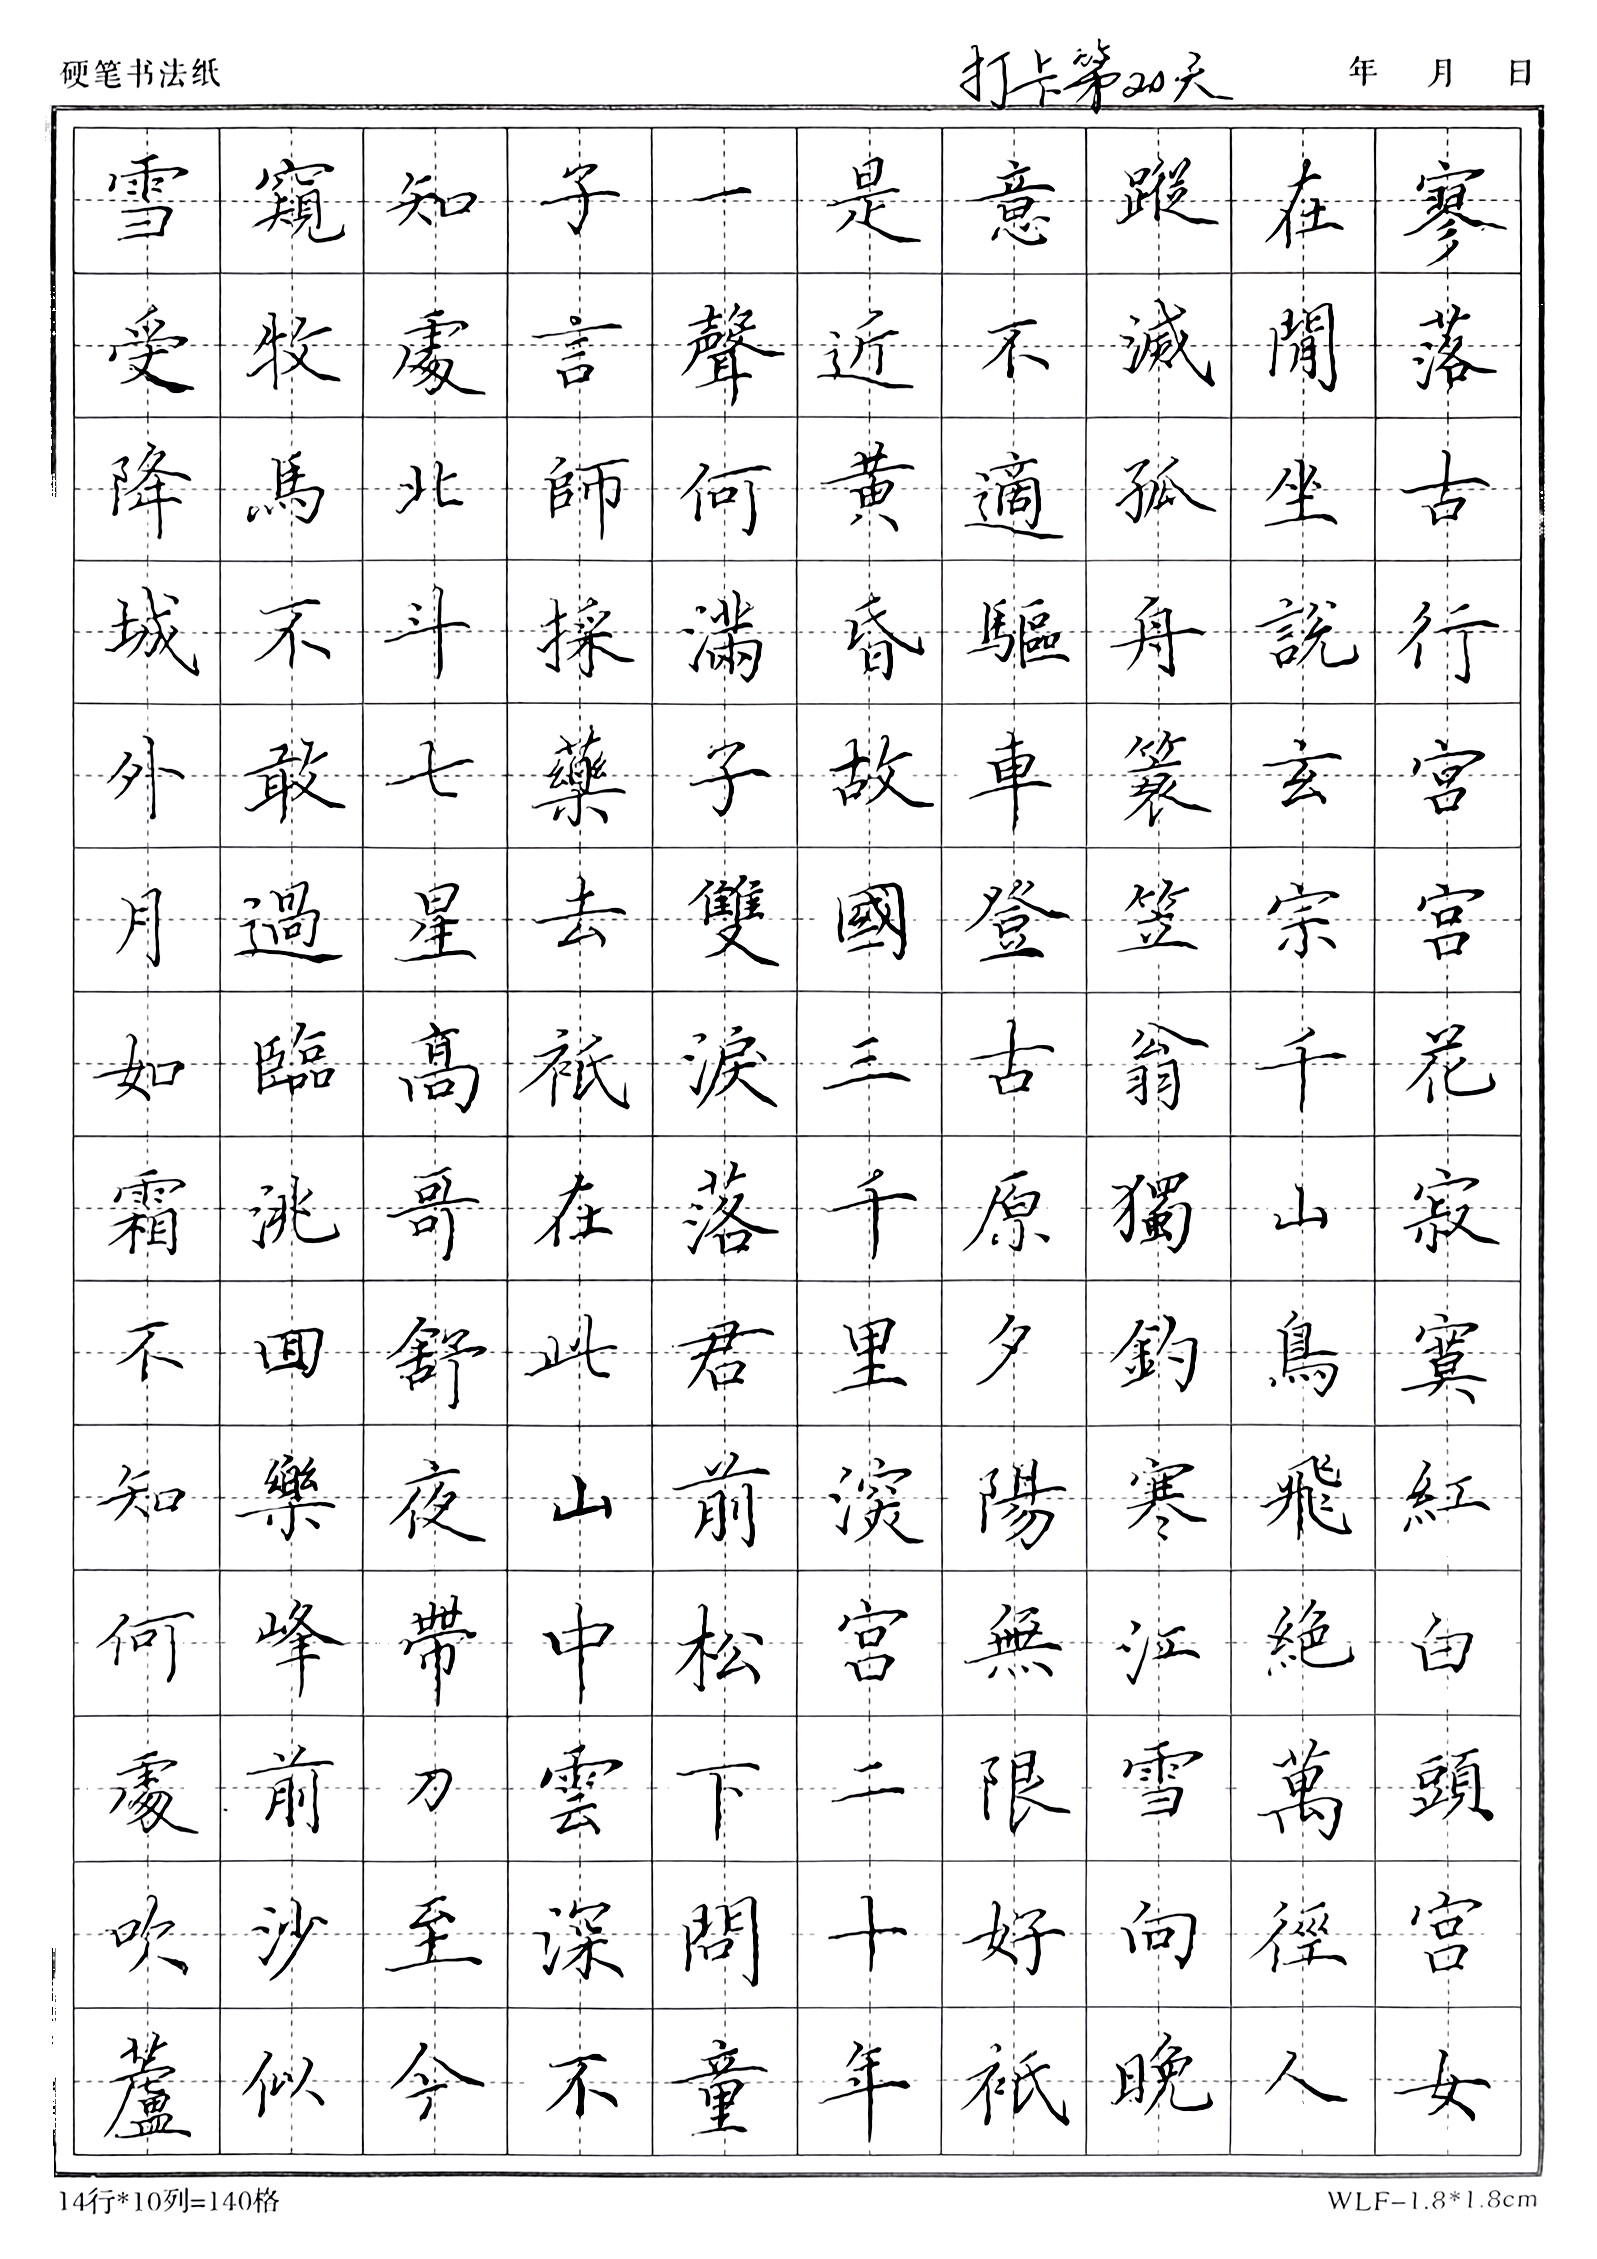 硬笔书法纸
打卡第20天
年 月 日
寥落古行宮宮花寂寞紅白頭宮女
在閒坐說玄宗千山鳥飛絕萬徑人
蹤滅孤舟簑笠翁獨釣寒江雪向晚
意不適驅車登古原夕陽無限好祇
是近黃昏故國三千里深宮二十年
一聲何滿子雙淚落君前松下問童
子言師採藥去祇在此山中雲深不
知處北斗七星高哥舒夜帶刀至今
窺牧馬不敢過臨洮回樂峰前沙似
雪受降城外月如霜不知何處吹蘆
14行*10列=140格
WLF-1.8*1.8cm